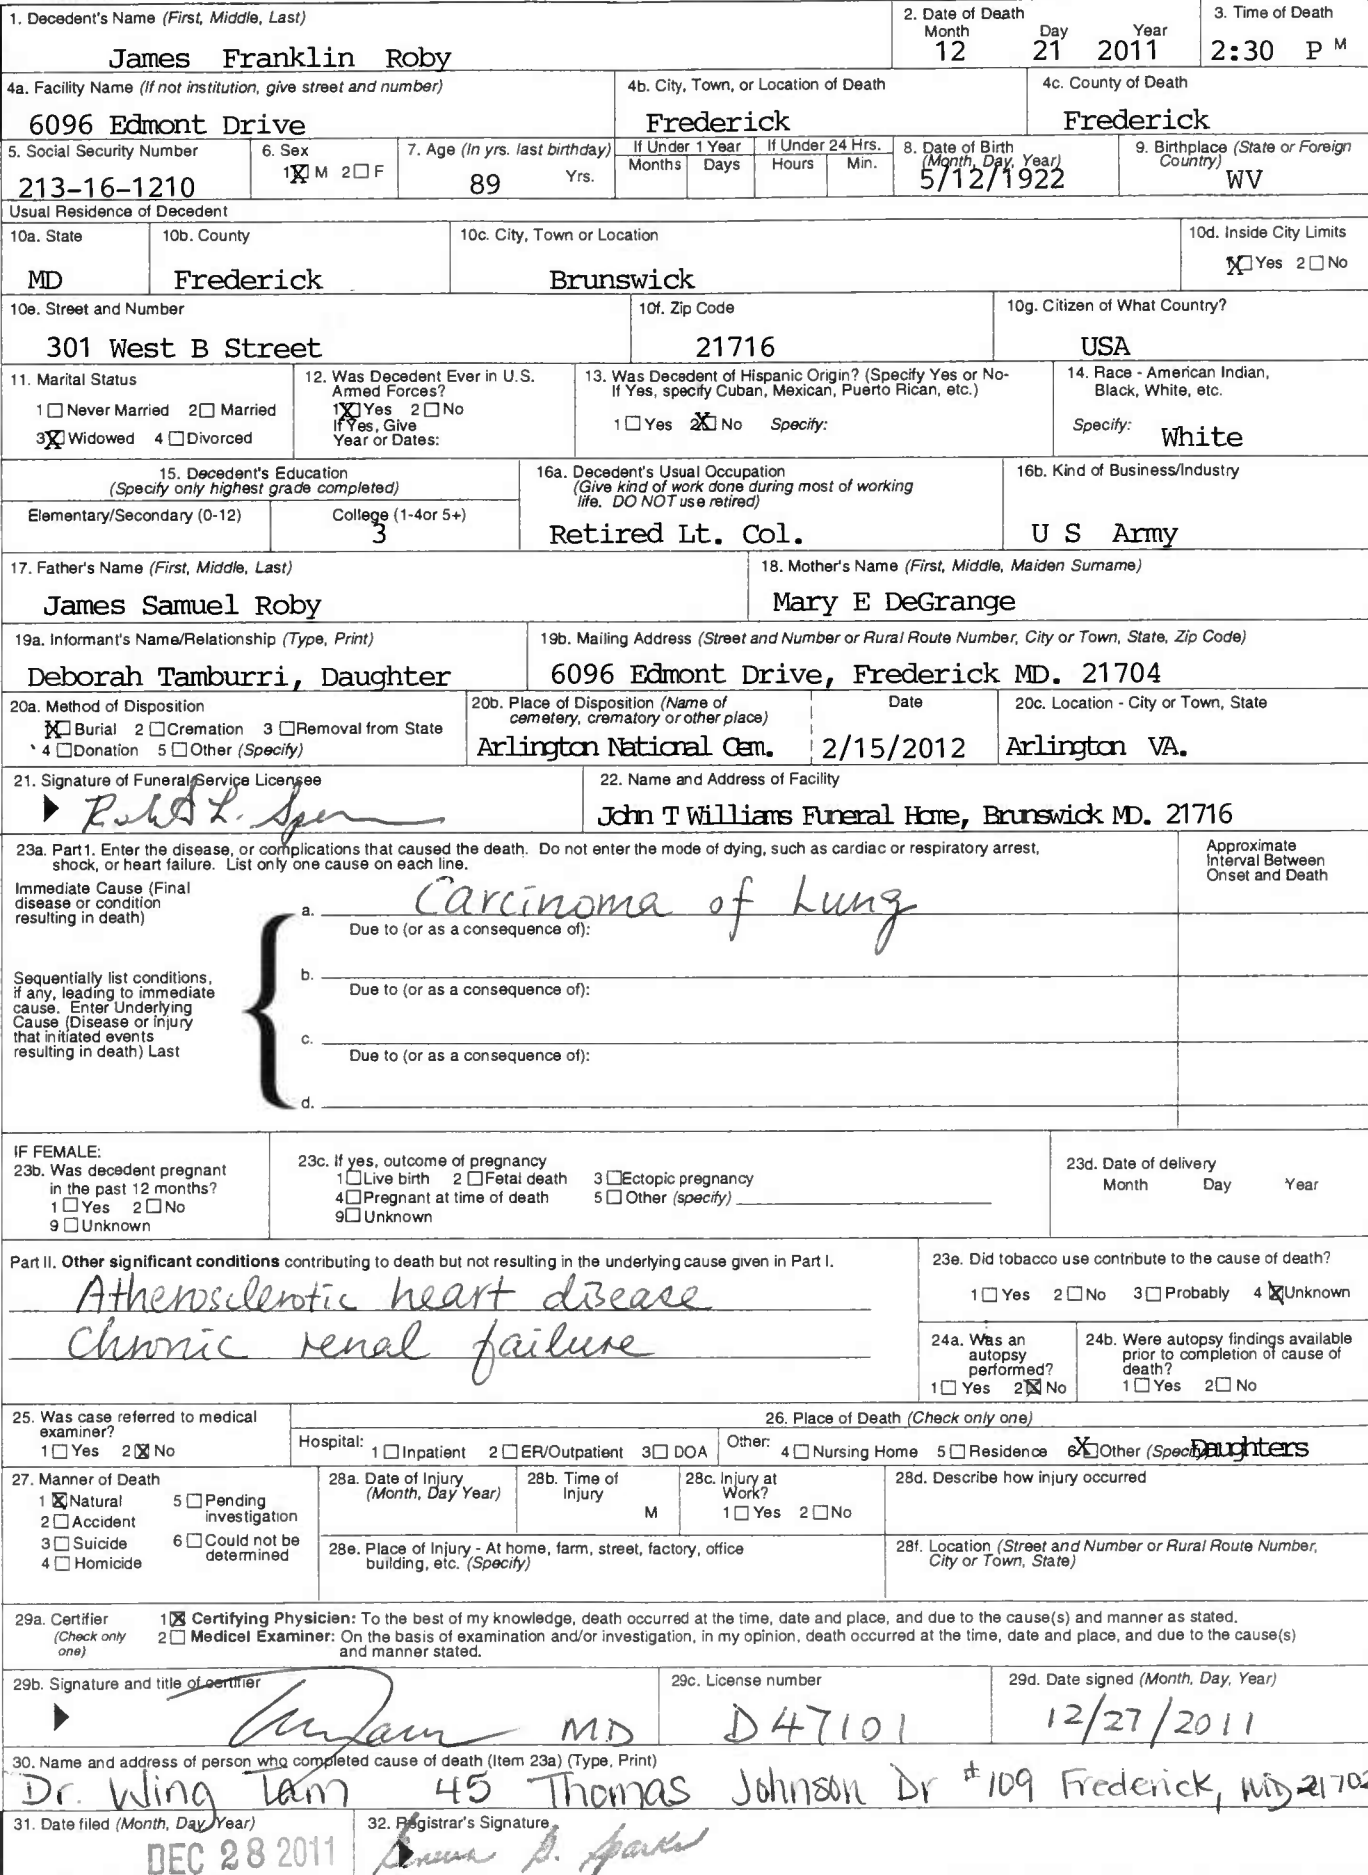 1. Decedent's Name (First, Middle, Last)
James Franklin Roby
2. Date of Death
Month Day Year
12 21 2011
3. Time of Death
2:30 P M
4a. Facility Name (If not institution, give street and number)
6096 Edmont Drive
4b. City, Town, or Location of Death
Frederick
4c. County of Death
Frederick
5. Social Security Number
213-16-1210
6. Sex
1☒ M 2☐ F
7. Age (In yrs. last birthday)
89 Yrs.
If Under 1 Year
Months Days
If Under 24 Hrs.
Hours Min.
8. Date of Birth
(Month, Day, Year)
5/12/1922
9. Birthplace (State or Foreign
Country)
WV
Usual Residence of Decedent
10a. State
MD
10b. County
Frederick
10c. City, Town or Location
Brunswick
10d. Inside City Limits
1☒ Yes 2☐ No
10e. Street and Number
301 West B Street
10f. Zip Code
21716
10g. Citizen of What Country?
USA
11. Marital Status
1☐ Never Married 2☐ Married
3☒ Widowed 4☐ Divorced
12. Was Decedent Ever in U.S.
Armed Forces?
1☒ Yes 2☐ No
If Yes, Give
Year or Dates:
13. Was Decedent of Hispanic Origin? (Specify Yes or No-
If Yes, specify Cuban, Mexican, Puerto Rican, etc.)
1☐ Yes 2☒ No Specify:
14. Race - American Indian,
Black, White, etc.
Specify: White
15. Decedent's Education
(Specify only highest grade completed)
Elementary/Secondary (0-12)
College (1-4or 5+)
3
16a. Decedent's Usual Occupation
(Give kind of work done during most of working
life. DO NOT use retired)
Retired Lt. Col.
16b. Kind of Business/Industry
U S Army
17. Father's Name (First, Middle, Last)
James Samuel Roby
18. Mother's Name (First, Middle, Maiden Surname)
Mary E DeGrange
19a. Informant's Name/Relationship (Type, Print)
Deborah Tamburri, Daughter
19b. Mailing Address (Street and Number or Rural Route Number, City or Town, State, Zip Code)
6096 Edmont Drive, Frederick MD. 21704
20a. Method of Disposition
1☒ Burial 2☐ Cremation 3☐ Removal from State
4☐ Donation 5☐ Other (Specify)
20b. Place of Disposition (Name of
cemetery, crematory or other place)
Arlington National Cem.
Date
2/15/2012
20c. Location - City or Town, State
Arlington VA.
21. Signature of Funeral Service Licensee
22. Name and Address of Facility
John T Williams Funeral Home, Brunswick MD. 21716
23a. Part1. Enter the disease, or complications that caused the death. Do not enter the mode of dying, such as cardiac or respiratory arrest,
shock, or heart failure. List only one cause on each line.
Approximate
Interval Between
Onset and Death
Immediate Cause (Final
disease or condition
resulting in death)
a. Carcinoma of Lung
Due to (or as a consequence of):
Sequentially list conditions,
if any, leading to immediate
cause. Enter Underlying
Cause (Disease or injury
that initiated events
resulting in death) Last
b.
Due to (or as a consequence of):
c.
Due to (or as a consequence of):
d.
IF FEMALE:
23b. Was decedent pregnant
in the past 12 months?
1☐ Yes 2☐ No
9☐ Unknown
23c. If yes, outcome of pregnancy
1☐ Live birth 2☐ Fetal death 3☐ Ectopic pregnancy
4☐ Pregnant at time of death 5☐ Other (specify)
9☐ Unknown
23d. Date of delivery
Month Day Year
Part II. Other significant conditions contributing to death but not resulting in the underlying cause given in Part I.
Atherosclerotic heart disease
Chronic renal failure
23e. Did tobacco use contribute to the cause of death?
1☐ Yes 2☐ No 3☐ Probably 4☒ Unknown
24a. Was an
autopsy
performed?
1☐ Yes 2☒ No
24b. Were autopsy findings available
prior to completion of cause of
death?
1☐ Yes 2☐ No
25. Was case referred to medical
examiner?
1☐ Yes 2☒ No
26. Place of Death (Check only one)
Hospital: 1☐ Inpatient 2☐ ER/Outpatient 3☐ DOA
Other: 4☐ Nursing Home 5☐ Residence 6☒ Other (Specify) Daughters
27. Manner of Death
1☒ Natural 5☐ Pending
investigation
2☐ Accident
3☐ Suicide 6☐ Could not be
determined
4☐ Homicide
28a. Date of Injury
(Month, Day Year)
28b. Time of
Injury
M
28c. Injury at
Work?
1☐ Yes 2☐ No
28d. Describe how injury occurred
28e. Place of Injury - At home, farm, street, factory, office
building, etc. (Specify)
28f. Location (Street and Number or Rural Route Number,
City or Town, State)
29a. Certifier
(Check only
one)
1☒ Certifying Physicien: To the best of my knowledge, death occurred at the time, date and place, and due to the cause(s) and manner as stated.
2☐ Medicel Examiner: On the basis of examination and/or investigation, in my opinion, death occurred at the time, date and place, and due to the cause(s)
and manner stated.
29b. Signature and title of certifier
MD
29c. License number
D47101
29d. Date signed (Month, Day, Year)
12/27/2011
30. Name and address of person who completed cause of death (Item 23a) (Type, Print)
Dr. Wing Tam 45 Thomas Johnson Dr #109 Frederick, MD 21702
31. Date filed (Month, Day, Year)
DEC 28 2011
32. Registrar's Signature